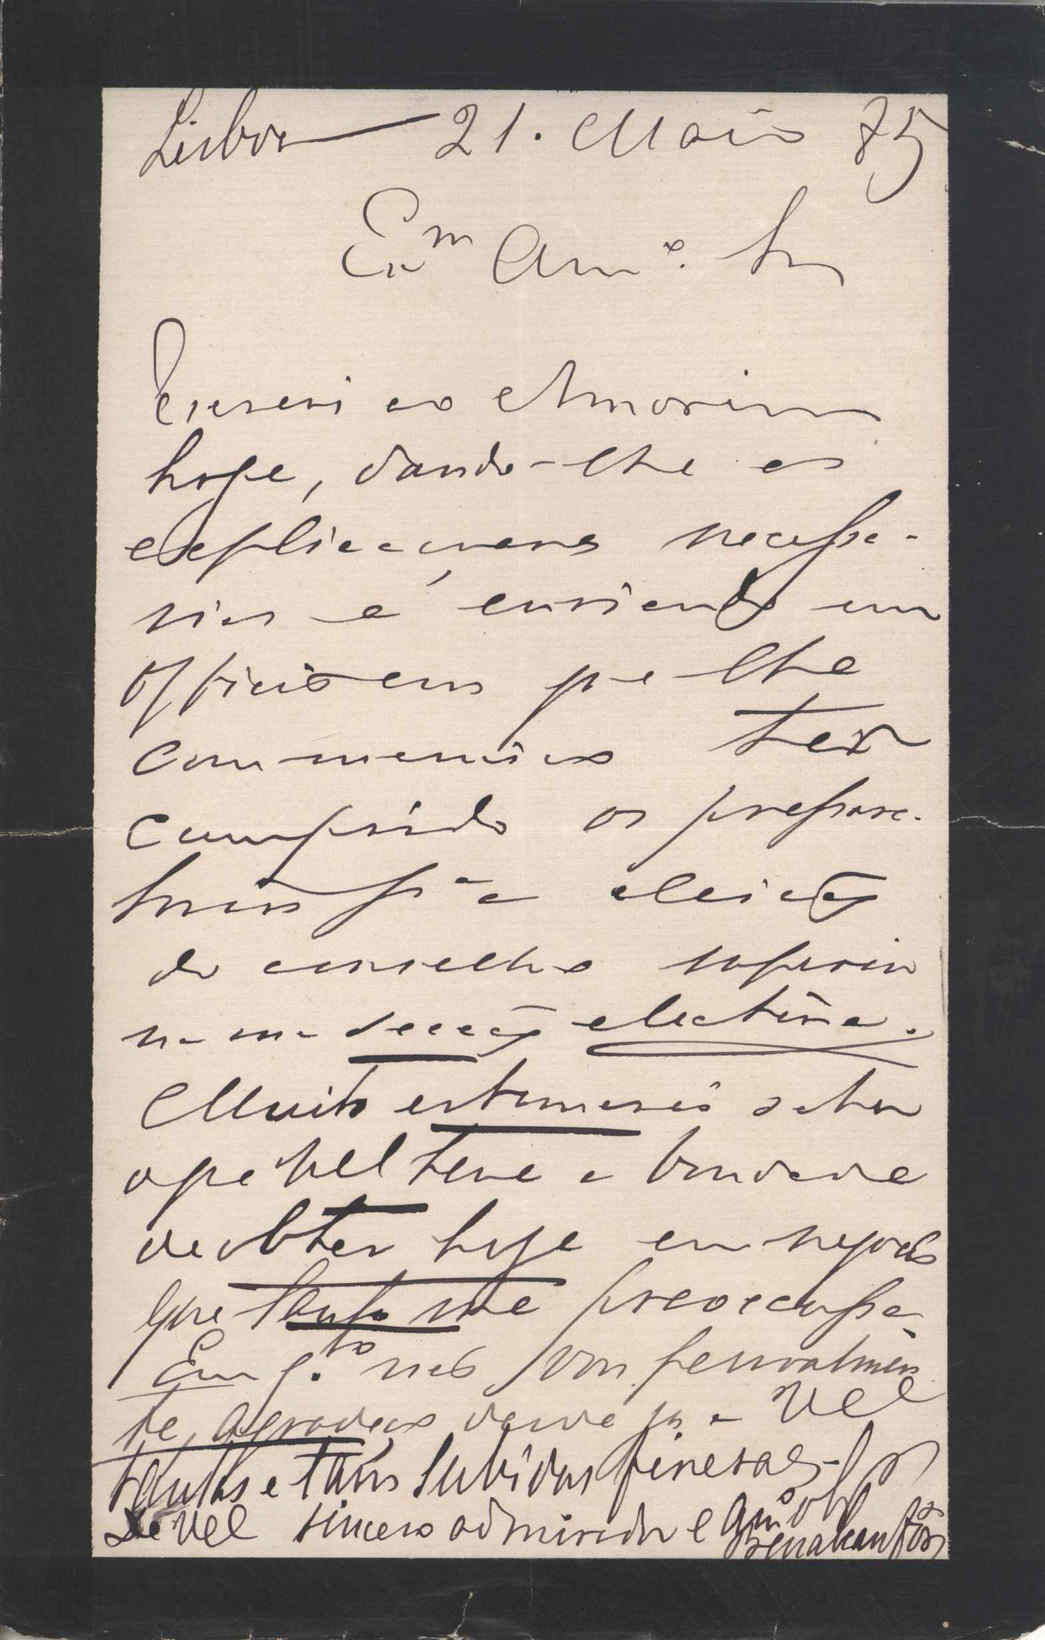 Lisboa 21. Maio 85
Exm Amo. Sr
Escrevi ao Amorim
hoje, dando-lhe as
explicaçoens necessa-
rias e enviando um
officio em que lhe
communico ter
cumprido os prepara-
torios pra a eleição
do conselho superior
na sua secção electiva.
Muito estimarei saber
o que VEx teve a bondade
de obter hoje em negocio
que tanto me preoccupa
Em q.to não vou pessoalmen
te, agradeço desde já a VEx
tantas e tão subidas finesas-
De VEx sincero admirador e am.o obr
Penalva